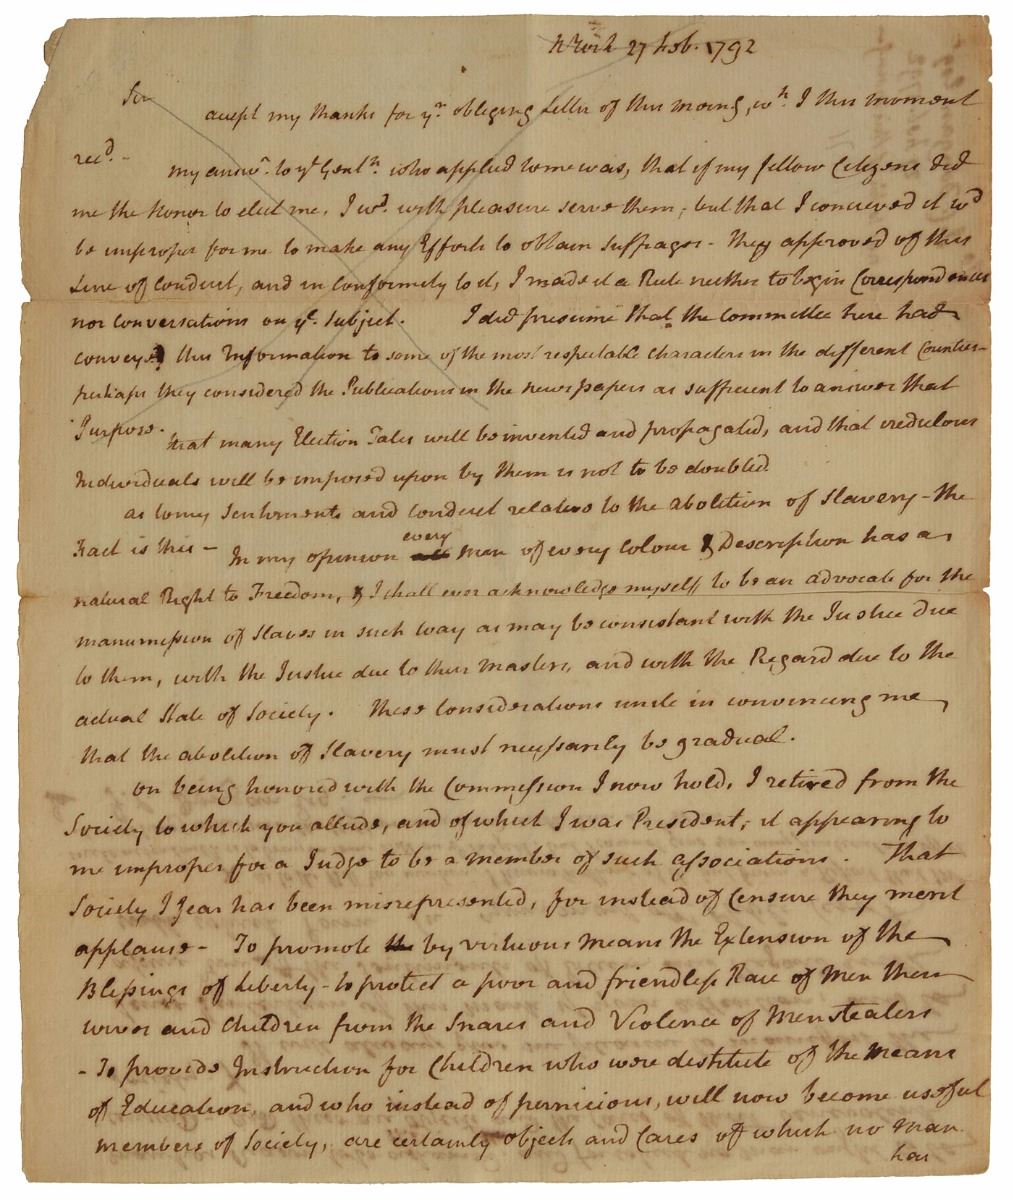 N York 27 Feb. 1792
Sir
accept my thanks for yr. obliging Letter of this morng, wh. I this moment
recd. -
my answr. to ye Gentn. who applied to me was, that if my fellow Citizens did
me the Honor to elect me, I wd. with pleasure serve them; but that I concieved it wd
be improper for me to make any Efforts to obtain suffrages - They approved of this
Line of conduct, and in conformity to it, I made it a Rule neither to begin Correspondences
nor Conversations on ye. subject. I did presume that the committee here had
conveyed this Information to some of the most respectable characters in the different Counties -
perhaps they considered the Publications in the news papers as sufficient to answer that
Purpose.
that many Election Tales will be invented and propagated, and that credulous
Individuals will be imposed upon by them is not to be doubted
as to my Sentiments and conduct relative to the abolition of Slavery - the
Fact is this -
In my opinion every man of every Colour & Description has a
natural Right to Freedom, & I shall ever acknowledge myself to be an advocate for the
manumission of Slaves in such way as may be consistant with the Justice due
to them, with the Justice due to their masters, and with the Regard due to the
actual State of Society. These Considerations unite in convincing me
that the abolition of Slavery must necessarily be gradual.
on being honored with the Commission I now hold, I retired from the
Society to which you allude, and of which I was President; it appearing to
me improper for a Judge to be a member of such associations. That
Society I fear has been misrepresented, for instead of Censure they merit
applause - To promote by virtuous means the Extension of the
Blessings of Liberty - to protect a poor and friendless Race of Men their
wives and Children from the Snares and Violence of Menstealers
- To provide Instruction for Children who were destitute of the Means
of Education, and who instead of pernicious, will now become useful
members of Society, are certainly objects and Cares of which no man
has